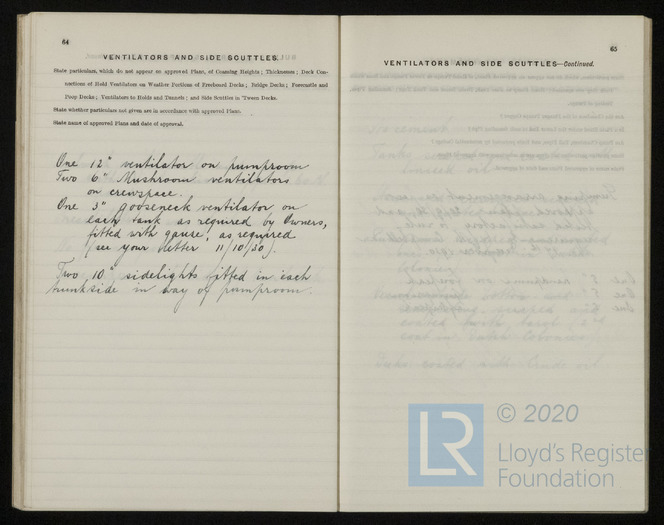 64
VENTILATORS AND SIDE SCUTTLES.
State particulars, which do not appear on approved Plans, of Coaming Heights; Thicknesses; Deck Con-
nections of Hold Ventilators on Weather Portions of Freeboard Decks; Bridge Decks; Forecastle and
Poop Decks; Ventilators to Holds and Tunnels; and Side Scuttles in 'Tween Decks.
State whether particulars not given are in accordance with approved Plans.
State name of approved Plans and date of approval.
One 12" ventilator on pumproom
Two 6" Mushroom ventilators
on crewspace.
One 3" gooseneck ventilator on
each tank as required by Owners,
fitted with gauze, as required
(see your letter 11/10/20).
Two 10" sidelights fitted in each
trunkside in way of pumproom.
65
VENTILATORS AND SIDE SCUTTLES—Continued.
LR
© 2020
Lloyd's Register
Foundation